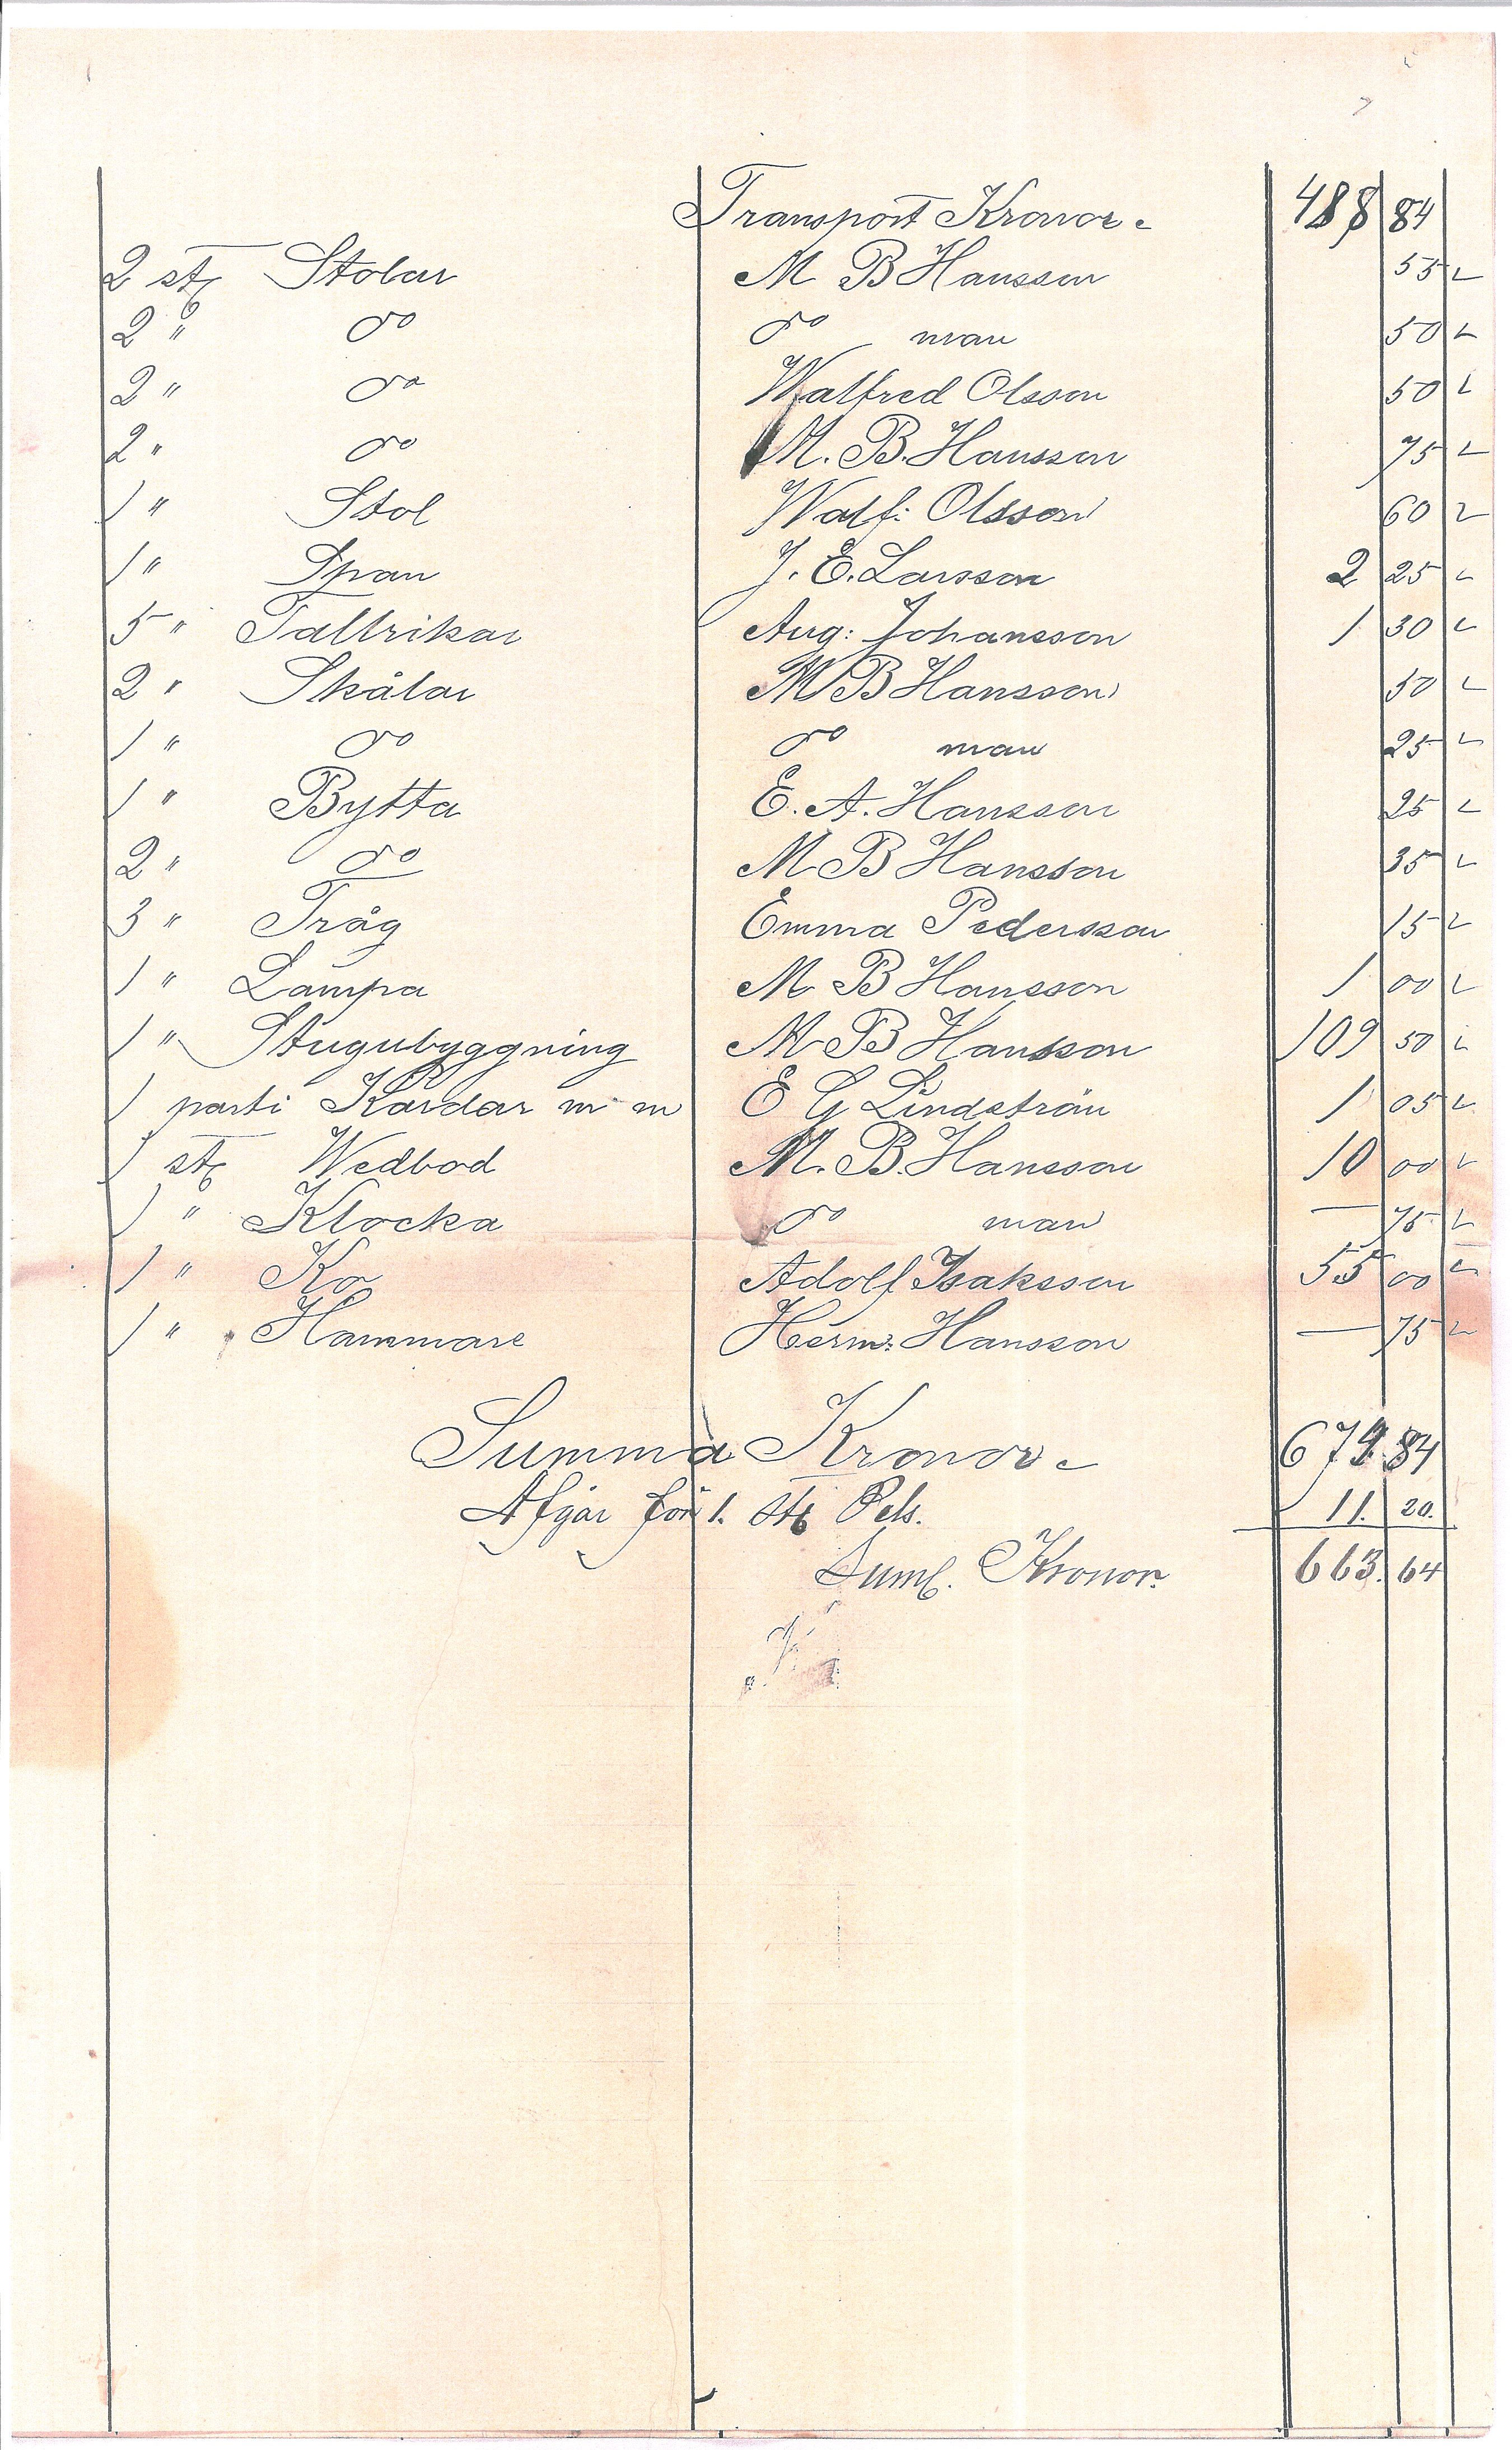 Transport Kronor 488 84
2 st Stolar M B Hansson 55
2 " do do man 50
2 " do Walfred Olsson 50
2 " do M. B. Hansson 75
1 " Stol Walf: Olsson 60
1 " Span J. E. Larsson 2 25
5 " Tallrikar Aug: Johansson 1 30
2 " Skålar M B Hansson 50
1 " do do man 25
1 " Bytta E. A. Hansson 25
2 " do M B Hansson 35
3 " Tråg Emma Pedersson 15
1 " Lampa M B Hansson 1 00
1 " Stugubyggning M B Hansson 109 50
1 parti Kardar m m E G Lindström 1 05
1 st Wedbod M. B. Hansson 10 00
1 " Klocka do man — 75
1 " Ko Adolf Isaksson 55 00
1 " Hammare Herm: Hansson — 75
Summa Kronor 674 84
Afgår för 1. st Pels. 11. 20.
Sum. Kronor. 663. 64